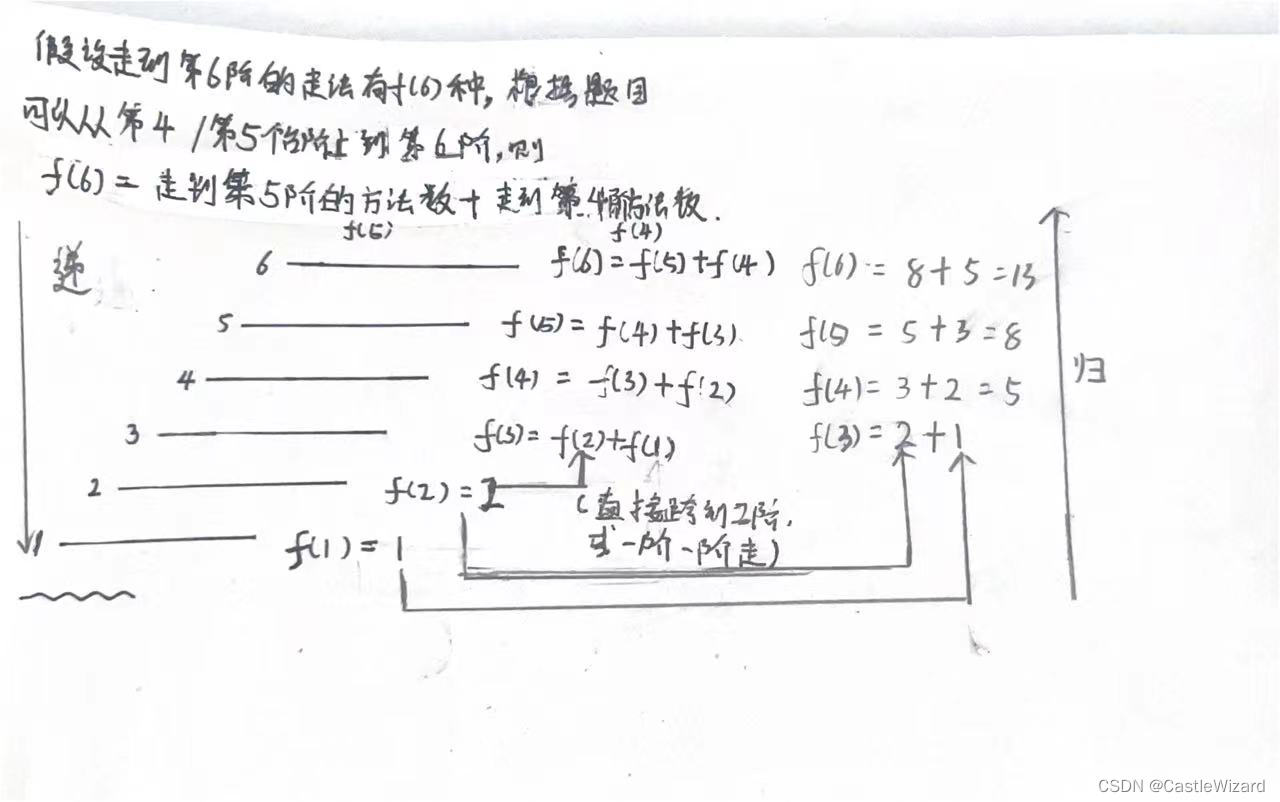 假设走到第6阶的走法有f(6)种, 根据题目
可以从第4/第5个台阶上到第6阶,则
f(6)= 走到第5阶的方法数+走到第4阶方法数.
f(5) f(4)
递 6 f(6)=f(5)+f(4) f(6)= 8+5=13
5 f(5)=f(4)+f(3) f(5 = 5+3=8
4 f(4) = f(3)+f(2) f(4)= 3+2=5 归
3 f(3)=f(2)+f(1) f(3)=2+1
2 f(2)=2 (直接跨到二阶,
或一阶一阶走)
1 f(1)=1
CSDN @CastleWizard